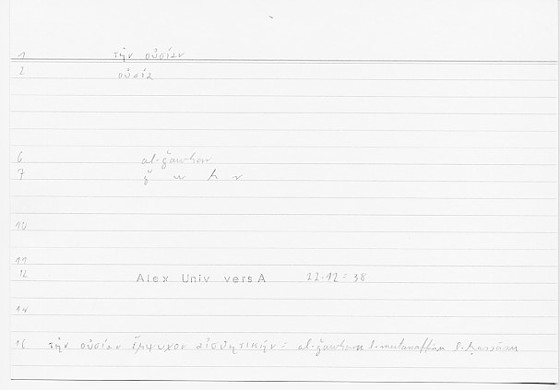 1 τὴν οὐσίαν
2 οὐσία
6 al-ǧauhar
7 ǧ w h r
10
11
12 Alex Univ vers A 22.12 = 38
14
15 τὴν οὐσίαν ἔμψυχον αἰσθητικήν =